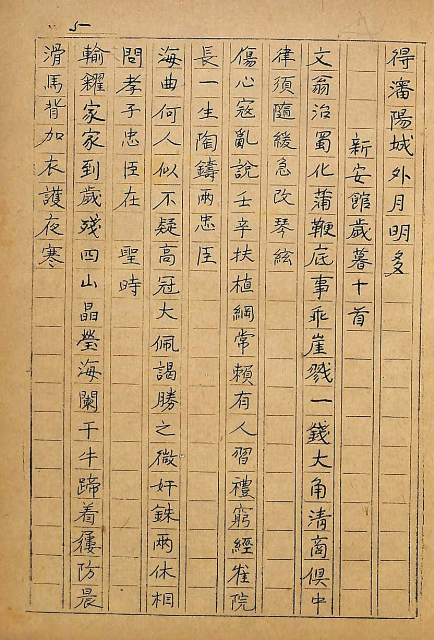 5
得瀋陽城外月明多
新安館歲暮十首
文翁治蜀化蒲鞭底事乖崖戮一錢大角清商俱中
律須隨緩急改琴絃
傷心寇亂說壬辛扶植綱常賴有人習禮窮經隹院
長一生陶鑄兩忠臣
海曲何人似不疑高冠大佩謁勝之微奸銖兩休相
問孝子忠臣在 聖時
輸家家到歲殘四山晶瑩海闌干牛蹄着屨防晨
滑馬背加衣護夜寒